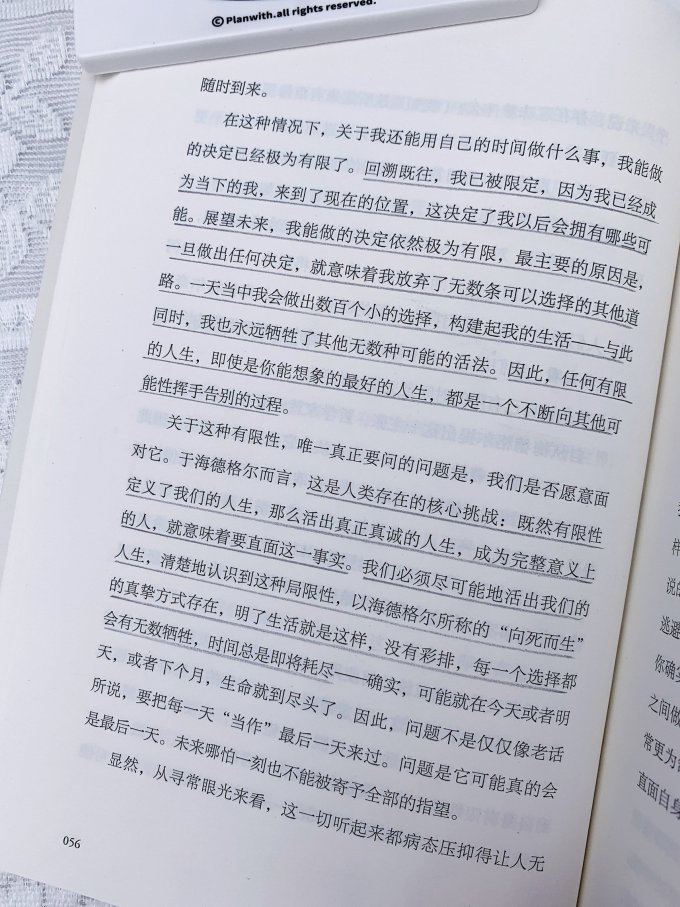 © Planwith.all rights reserved.
随时到来。
在这种情况下，关于我还能用自己的时间做什么事，我能做
的决定已经极为有限了。回溯既往，我已被限定，因为我已经成
为当下的我，来到了现在的位置，这决定了我以后会拥有哪些可
能。展望未来，我能做的决定依然极为有限，最主要的原因是，
一旦做出任何决定，就意味着我放弃了无数条可以选择的其他道
路。一天当中我会做出数百个小的选择，构建起我的生活——与此
同时，我也永远牺牲了其他无数种可能的活法。因此，任何有限
的人生，即使是你能想象的最好的人生，都是一个不断向其他可
能性挥手告别的过程。
关于这种有限性，唯一真正要问的问题是，我们是否愿意面
对它。于海德格尔而言，这是人类存在的核心挑战：既然有限性
定义了我们的人生，那么活出真正真诚的人生，成为完整意义上
的人，就意味着要直面这一事实。我们必须尽可能地活出我们的
人生，清楚地认识到这种局限性，以海德格尔所称的“向死而生”
的真挚方式存在，明了生活就是这样，没有彩排，每一个选择都
会有无数牺牲，时间总是即将耗尽——确实，可能就在今天或者明
天，或者下个月，生命就到尽头了。因此，问题不是仅仅像老话
所说，要把每一天“当作”最后一天来过。问题是它可能真的会
是最后一天。未来哪怕一刻也不能被寄予全部的指望。
显然，从寻常眼光来看，这一切听起来都病态压抑得让人无
056
样
说的
逃避
你确实
之间做
常更为
直面自身